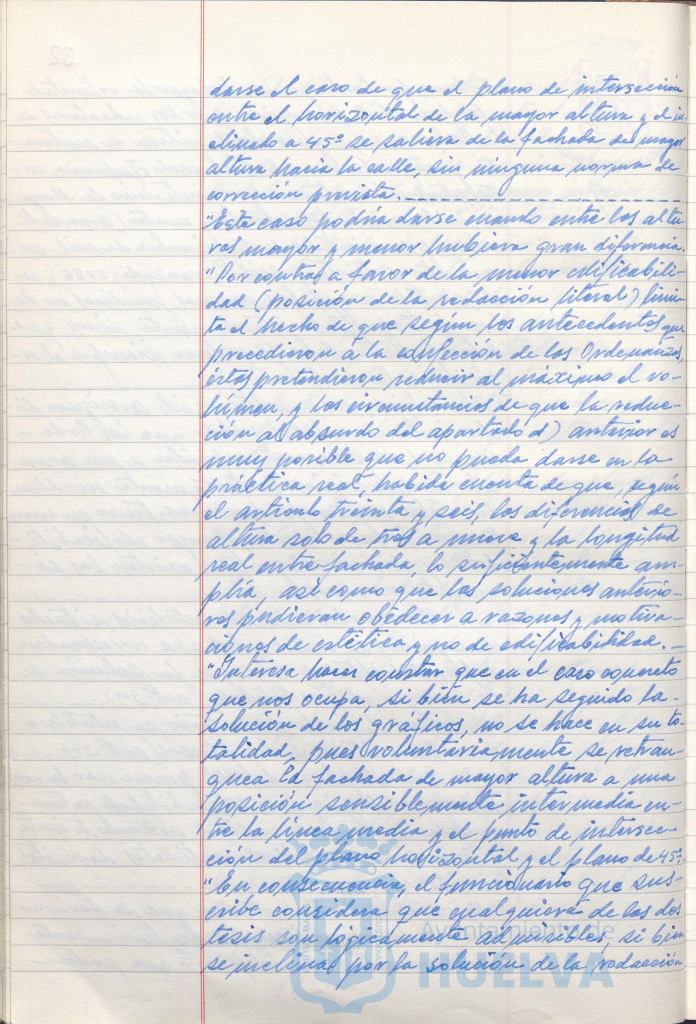 darse el caso de que el plano de intersección
entre el horizontal de la mayor altura y el in-
clinado a 45º se saliera de la fachada de mayor
altura hacia la calle, sin ninguna norma de
corrección prevista.
"Este caso podría darse cuando entre las altu-
ras mayor y menor hubiera gran diferencia.
"Por contra, a favor de la menor edificabili-
dad (posición de la redacción literal) limi-
ta el hecho de que según los antecedentes que
precedieron a la confección de las Ordenanzas,
éstas pretendieron reducir al máximo el vo-
lúmen, y las circunstancias de que la reduc-
ción al absurdo del apartado d) anterior es
muy posible que no pueda darse en la
práctica real, habida cuenta de que, según
el artículo treinta y seis, las diferencias de
altura solo de tres a nueve y la longitud
real entre fachada, lo suficientemente am-
plia, así como que las soluciones anterio-
res pudieran obedecer a razones y motiva-
ciones de estética y no de edificabilidad.
"Interesa hacer constar que en el caso concreto
que nos ocupa, si bien se ha seguido la
solución de los gráficos, no se hace en su to-
talidad, pues voluntariamente se retran-
quea la fachada de mayor altura a una
posición sensiblemente intermedia en-
tre la línea media y el punto de intersec-
ción del plano horizontal y el plano de 45º.
"En consecuencia, el funcionario que sus-
cribe considera que cualquiera de las dos
tesis son lógicamente admisibles, si bien
se inclina por la solución de la redacción
Ayuntamiento de
HUELVA